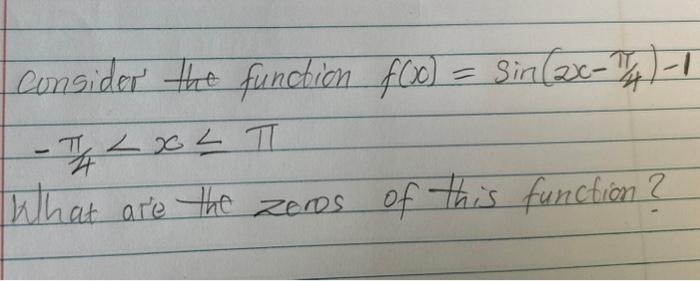 Consider the function f(x) = Sin(2x-π/4)-1
-π/4 < x ≤ π
What are the zeros of this function?